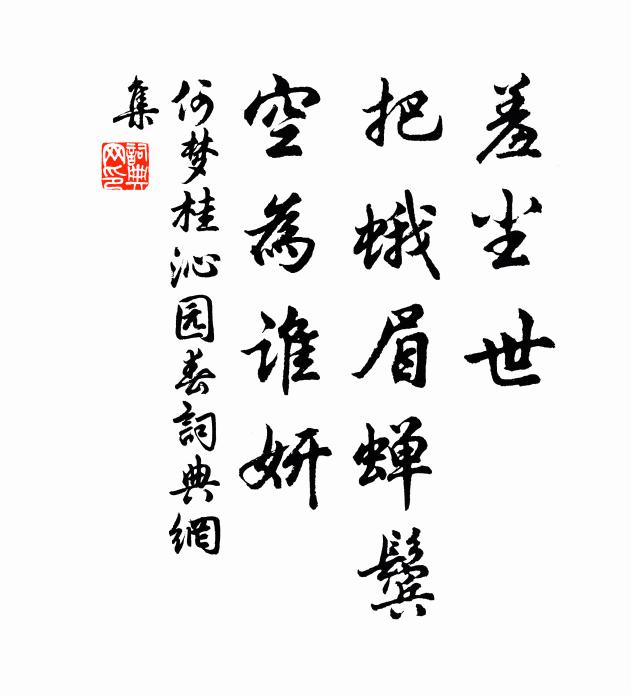 羞尘世
把蛾眉蝉鬓
空為谁妍
何梦桂沁园春詞典網
集
詞典
网印